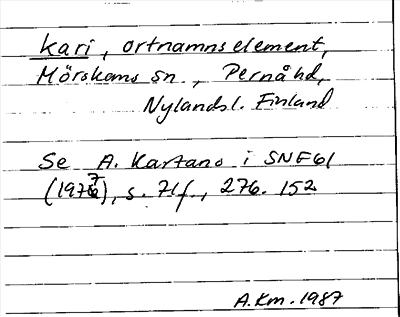 kari, ortnamnselement,
Mörskoms sn., Pernå hd,
Nylands l. Finland
Se A. Kartano i SNF 61
(1977), s. 71 f., 276. 152
A.Km. 1987